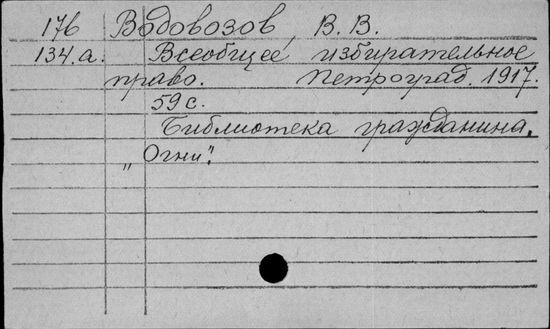 176 Водовозов, В. В.
134.а. Всеобщее избирательное
право. Петроград. 1917.
59 с.
Библиотека гражданина.
„Огни".